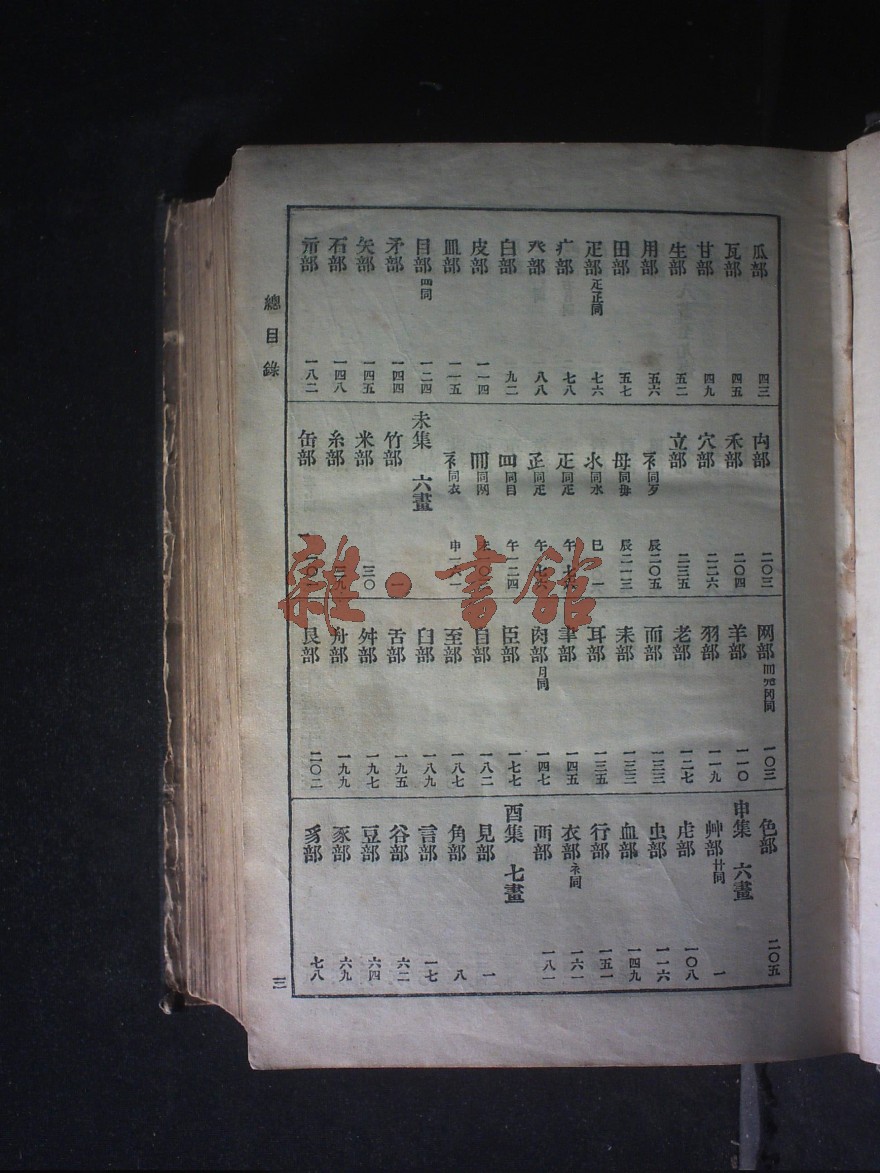 瓜部 四三
瓦部 四五
甘部 四九
生部 五二
用部 五六
田部 五七
疋部 𤴔正同 七六
疒部 七八
癶部 八八
白部 九二
皮部 一一四
皿部 一一五
目部 罒同 一二四
矛部 一四四
矢部 一四五
石部 一四八
示部 一八二
禸部 二〇三
禾部 二〇四
穴部 二二六
立部 二三五
歺同歹 辰二〇五
母同毋 辰二一三
氺同水 巳一
𤴔同疋 午七六
𤴓同疋 午七六
罒同目 午一二四
罒同网
衤同衣 申一六一
未集 六畫
竹部 一
米部 三〇
糸部 三九
缶部
网部 罒㓁冈同 一〇三
羊部 一一〇
羽部 一一九
老部 一二七
而部 一三三
耒部 一三三
耳部 一三五
聿部 一四五
肉部 月同 一四七
臣部 一七七
自部 一八二
至部 一八七
臼部 一八九
舌部 一九五
舛部 一九七
舟部 一九九
艮部 二〇二
色部 二〇五
申集 六畫
艸部 艹同 一
虍部 一〇八
虫部 一一六
血部 一四九
行部 一五一
衣部 衤同 一六一
襾部 一八一
酉集 七畫
見部 一
角部 八
言部 一七
谷部 六二
豆部 六四
豕部 六九
豸部 七八
總目錄
三
雜·書館